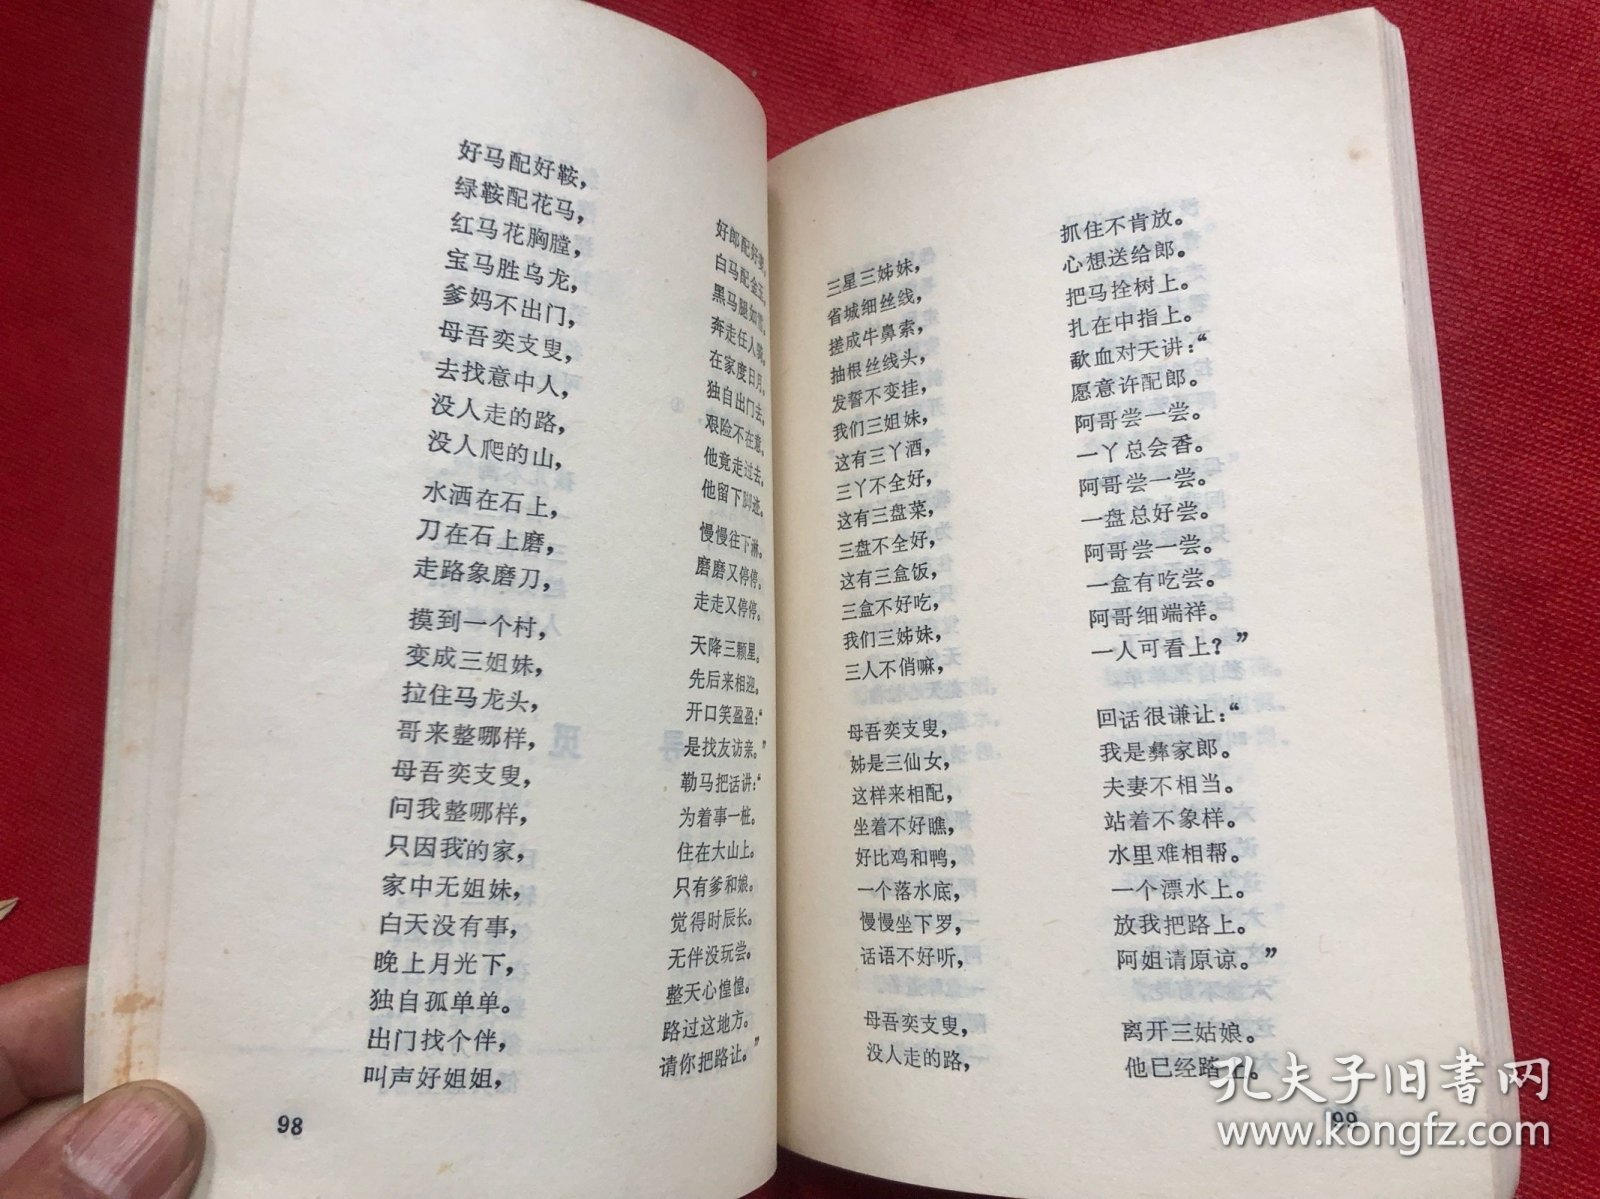 好马配好鞍， 好郎配好
绿鞍配花马， 白马配金
红马花胸膛， 黑马腿如
宝马胜乌龙， 奔走任人
爹妈不出门， 在家度日月，
母吾奕支叟， 独自出门去，
去找意中人， 艰险不在意，
没人走的路， 他竟走过去，
没人爬的山， 他留下脚迹。
水洒在石上， 慢慢往下淋。
刀在石上磨， 磨磨又停停。
走路象磨刀， 走走又停停。
摸到一个村， 天降三颗星。
变成三姐妹， 先后来相迎。
拉住马龙头， 开口笑盈盈：“
哥来整哪样， 是找友访亲。”
母吾奕支叟， 勒马把话讲：“
问我整哪样， 为着事一桩。
只因我的家， 住在大山上。
家中无姐妹， 只有爹和娘。
白天没有事， 觉得时辰长。
晚上月光下， 无伴没玩尝。
独自孤单单。 整天心惶惶。
出门找个伴， 路过这地方。
叫声好姐姐， 请你把路让。”
98
三星三姊妹， 抓住不肯放。
省城细丝线， 心想送给郎。
搓成牛鼻索， 把马拴树上。
抽根丝线头， 扎在中指上。
发誓不变挂， 歃血对天讲：“
我们三姐妹， 愿意许配郎。
这有三丫酒， 阿哥尝一尝。
三丫不全好， 一丫总会香。
这有三盘菜， 阿哥尝一尝。
三盘不全好， 一盘总好尝。
这有三盒饭， 阿哥尝一尝。
三盒不好吃， 一盒有吃尝。
我们三姊妹， 阿哥细端祥。
三人不俏嘛， 一人可看上？”
母吾奕支叟， 回话很谦让：“
姊是三仙女， 我是彝家郎。
这样来相配， 夫妻不相当。
坐着不好瞧， 站着不象样。
好比鸡和鸭， 水里难相帮。
一个落水底， 一个漂水上。
慢慢坐下罗， 放我把路上。
话语不好听， 阿姐请原谅。”
母吾奕支叟， 离开三姑娘。
没人走的路， 他已经踏上。
99
孔夫子旧书网
www.kongfz.com